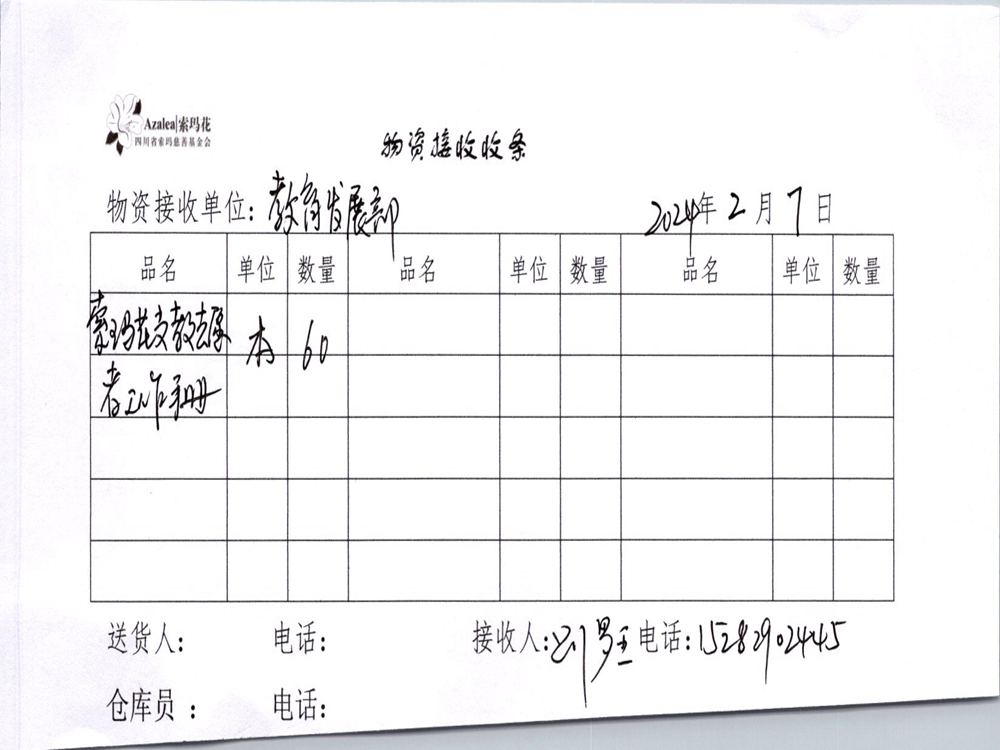 Azalea|索玛花
四川省索玛慈善基金会
物资接收收条
物资接收单位：教育发展部 2024年2月7日
品名 单位 数量 品名 单位 数量 品名 单位 数量
索玛花支教志愿 本 60
者工作手册
送货人： 电话： 接收人： 电话：15282902445
仓库员 ： 电话：